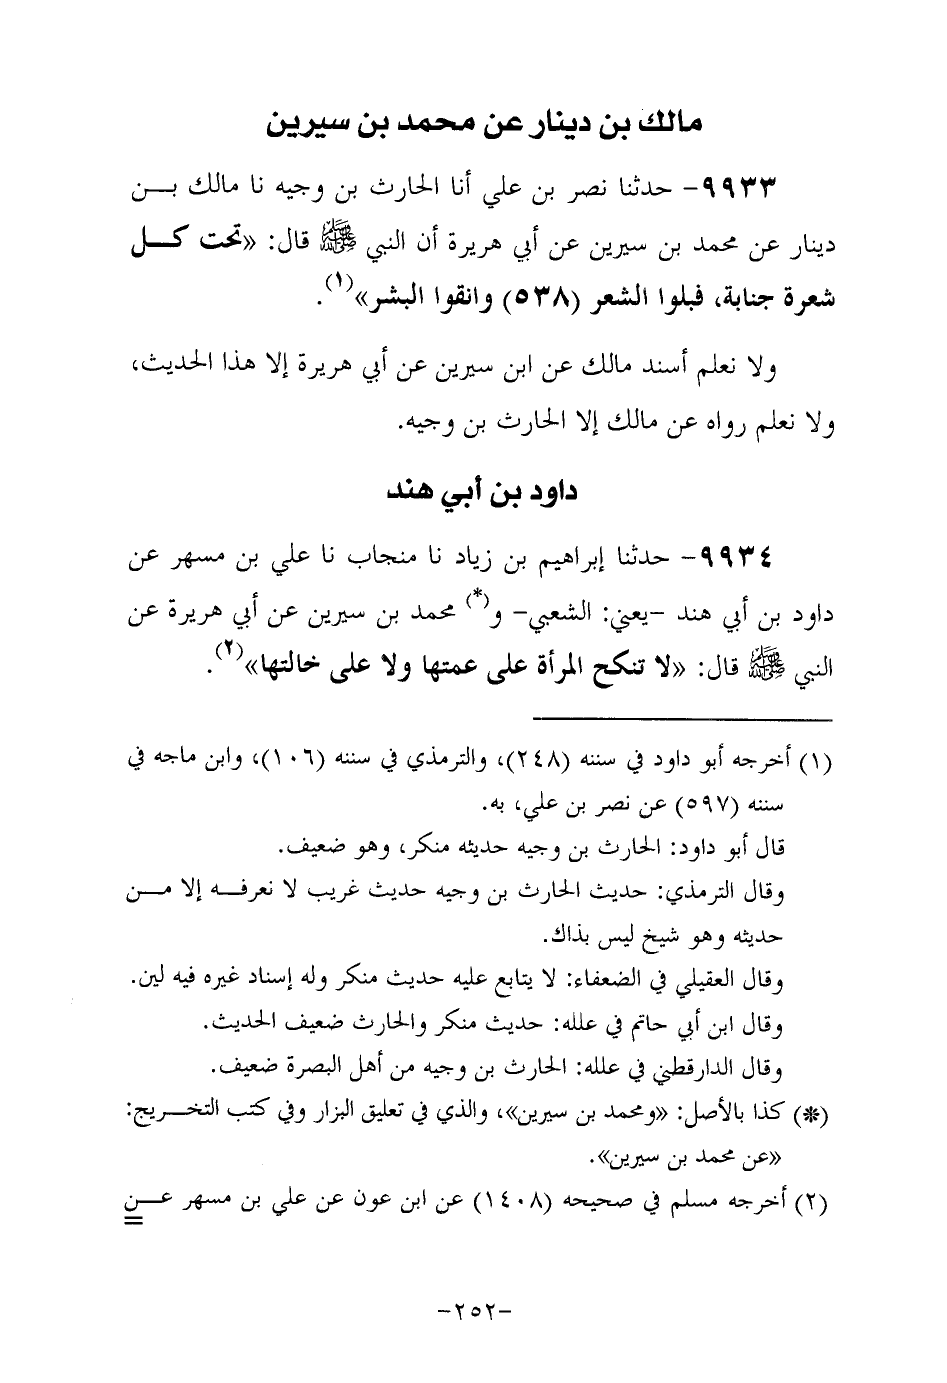 مالك بن دينار عن محمد بن سيرين
٩٩٣٣- حدثنا نصر بن علي أنا الحارث بن وجيه نا مالك بـــن
دينار عن محمد بن سيرين عن أبي هريرة أن النبي ﷺ قال: «تحت كـــل
شعرة جنابة، فبلوا الشعر (٥٣٨) وانقوا البشر»(١).
ولا نعلم أسند مالك عن ابن سيرين عن أبي هريرة إلا هذا الحديث،
ولا نعلم رواه عن مالك إلا الحارث بن وجيه.
داود بن أبي هند
٩٩٣٤- حدثنا إبراهيم بن زياد نا منجاب نا علي بن مسهر عن
داود بن أبي هند -يعني: الشعبي- و(*) محمد بن سيرين عن أبي هريرة عن
النبي ﷺ قال: «لا تنكح المرأة على عمتها ولا على خالتها»(٢).
(١) أخرجه أبو داود في سننه (٢٤٨)، والترمذي في سننه (١٠٦)، وابن ماجه في
سننه (٥٩٧) عن نصر بن علي، به.
قال أبو داود: الحارث بن وجيه حديثه منكر، وهو ضعيف.
وقال الترمذي: حديث الحارث بن وجيه حديث غريب لا نعرفـــه إلا مـــن
حديثه وهو شيخ ليس بذاك.
وقال العقيلي في الضعفاء: لا يتابع عليه حديث منكر وله إسناد غيره فيه لين.
وقال ابن أبي حاتم في علله: حديث منكر والحارث ضعيف الحديث.
وقال الدارقطني في علله: الحارث بن وجيه من أهل البصرة ضعيف.
(*) كذا بالأصل: «ومحمد بن سيرين»، والذي في تعليق البزار وفي كتب التخـــريج:
«عن محمد بن سيرين».
(٢) أخرجه مسلم في صحيحه (١٤٠٨) عن ابن عون عن علي بن مسهر عـــن
=
-٢٥٢-